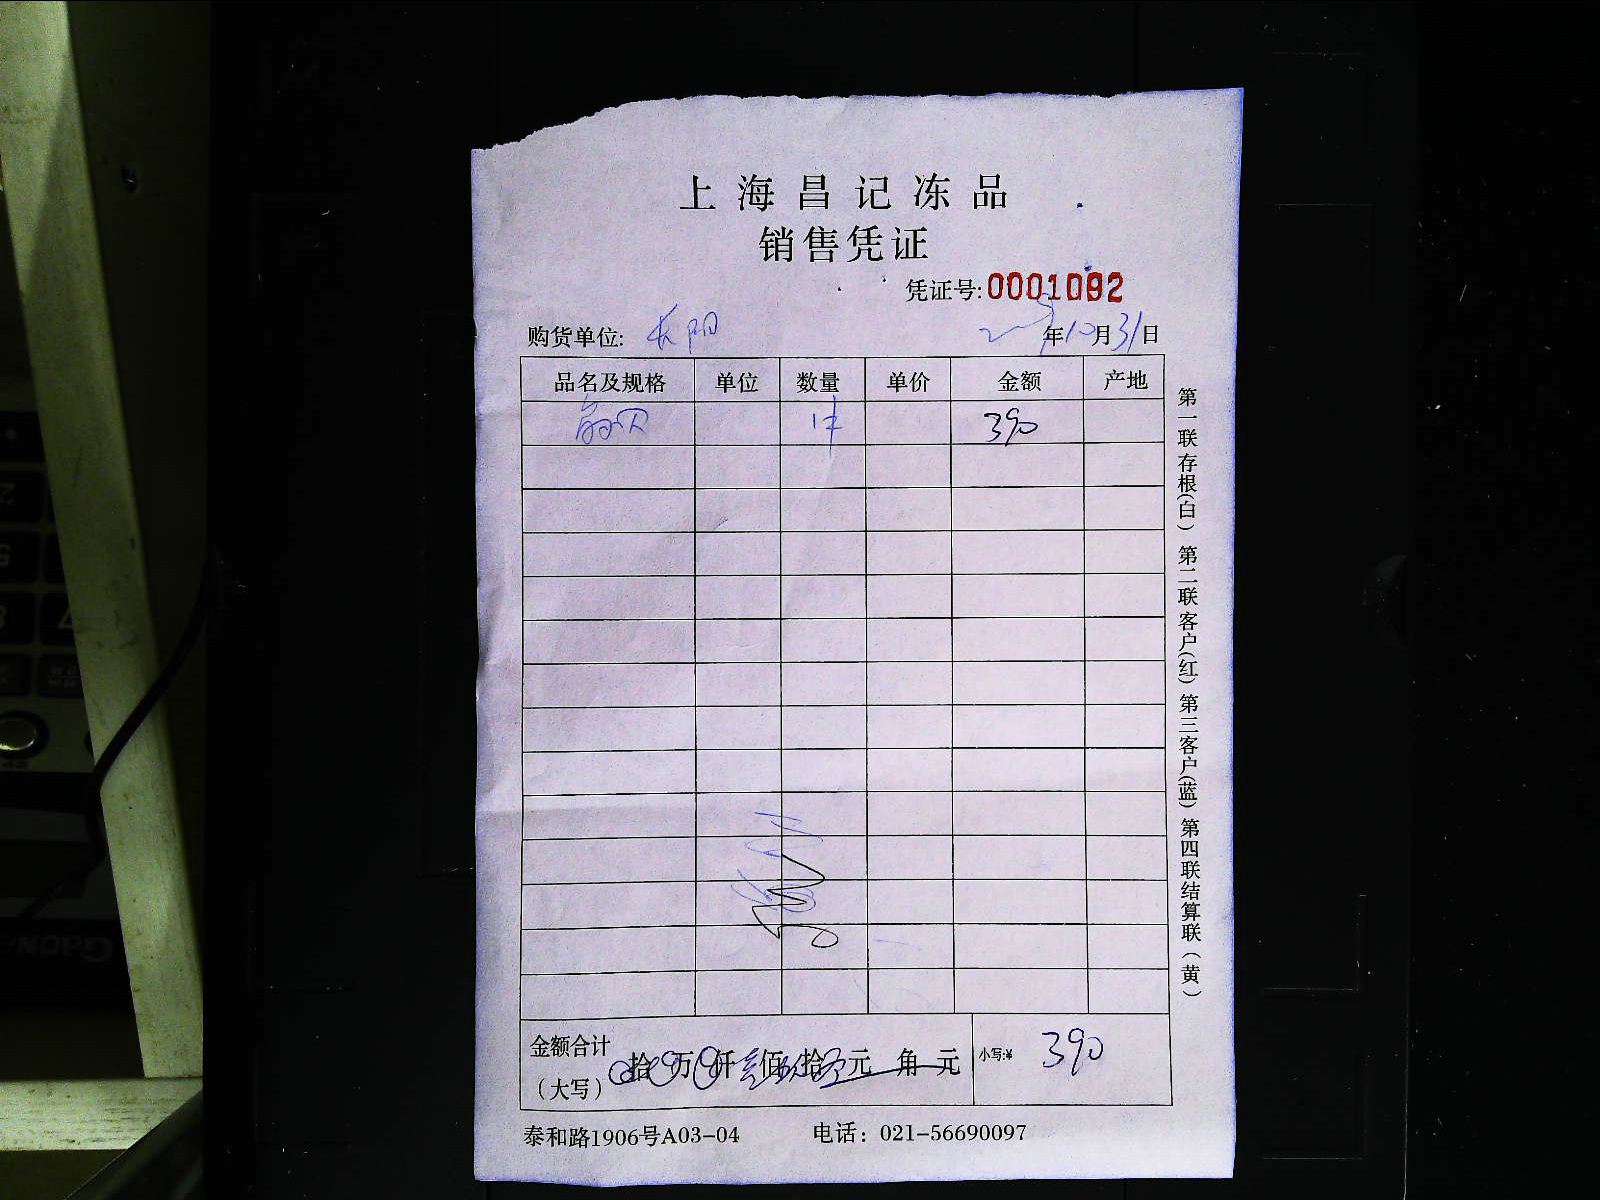 上海昌记冻品
销售凭证
凭证号:0001092
购货单位: 长阳 年10月31日
品名及规格 单位 数量 单价 金额 产地
1件 390
金额合计
(大写) 拾 万 仟 佰 拾 元 角 元 小写:¥ 390
泰和路1906号A03-04 电话: 021-56690097
第一联存根(白) 第二联客户(红) 第三客户(蓝) 第四联结算联(黄)